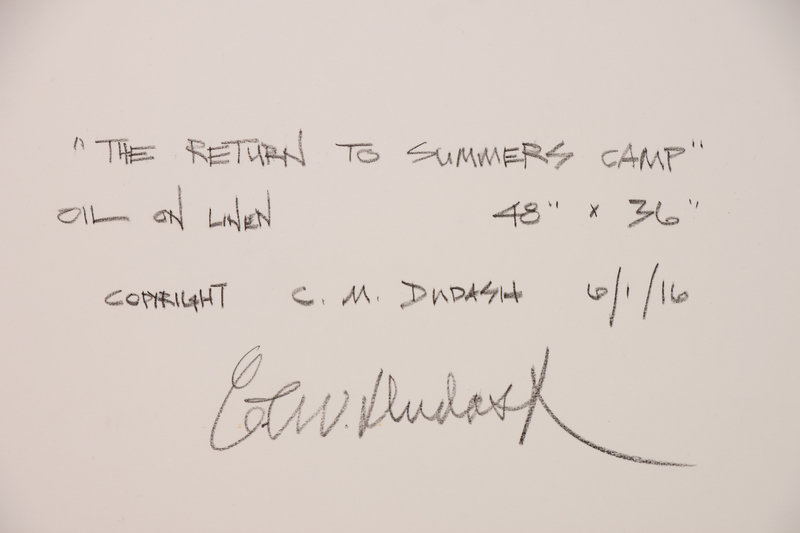 "THE RETURN TO SUMMERS CAMP"
OIL ON LINEN 48" x 36"
COPYRIGHT C. M. DUDASH 6/1/16
C. M. Dudash